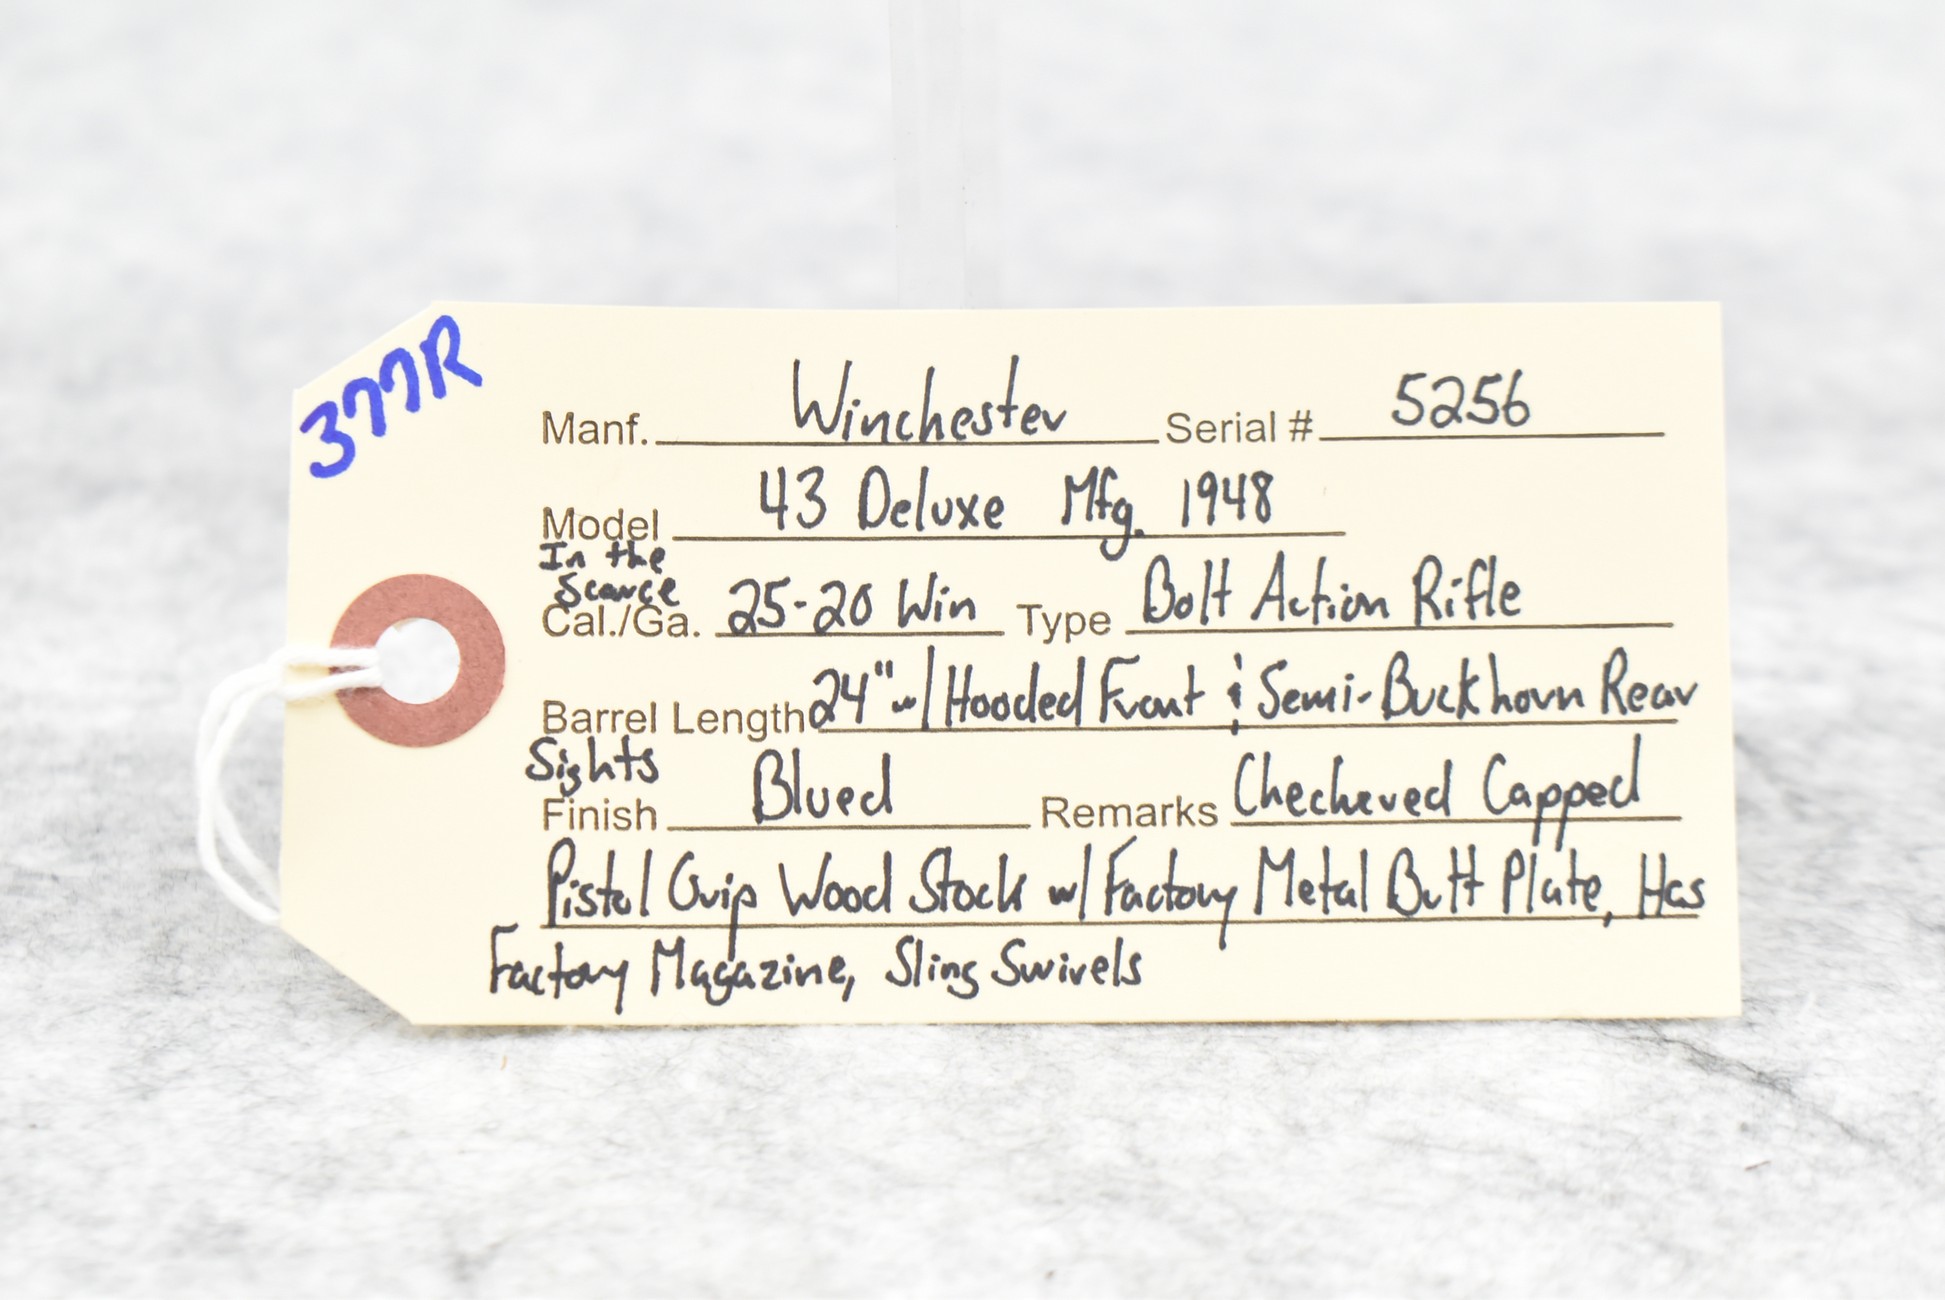 377R
Manf. Winchester Serial # 5256
Model 43 Deluxe Mfg. 1948
In the
Scarce
Cal./Ga. 25-20 Win Type Bolt Action Rifle
Barrel Length 24" w/ Hooded Front & Semi-Buckhorn Rear
Sights
Finish Blued Remarks Checkered Capped
Pistol Grip Wood Stock w/ Factory Metal Butt Plate, Has
Factory Magazine, Sling Swivels